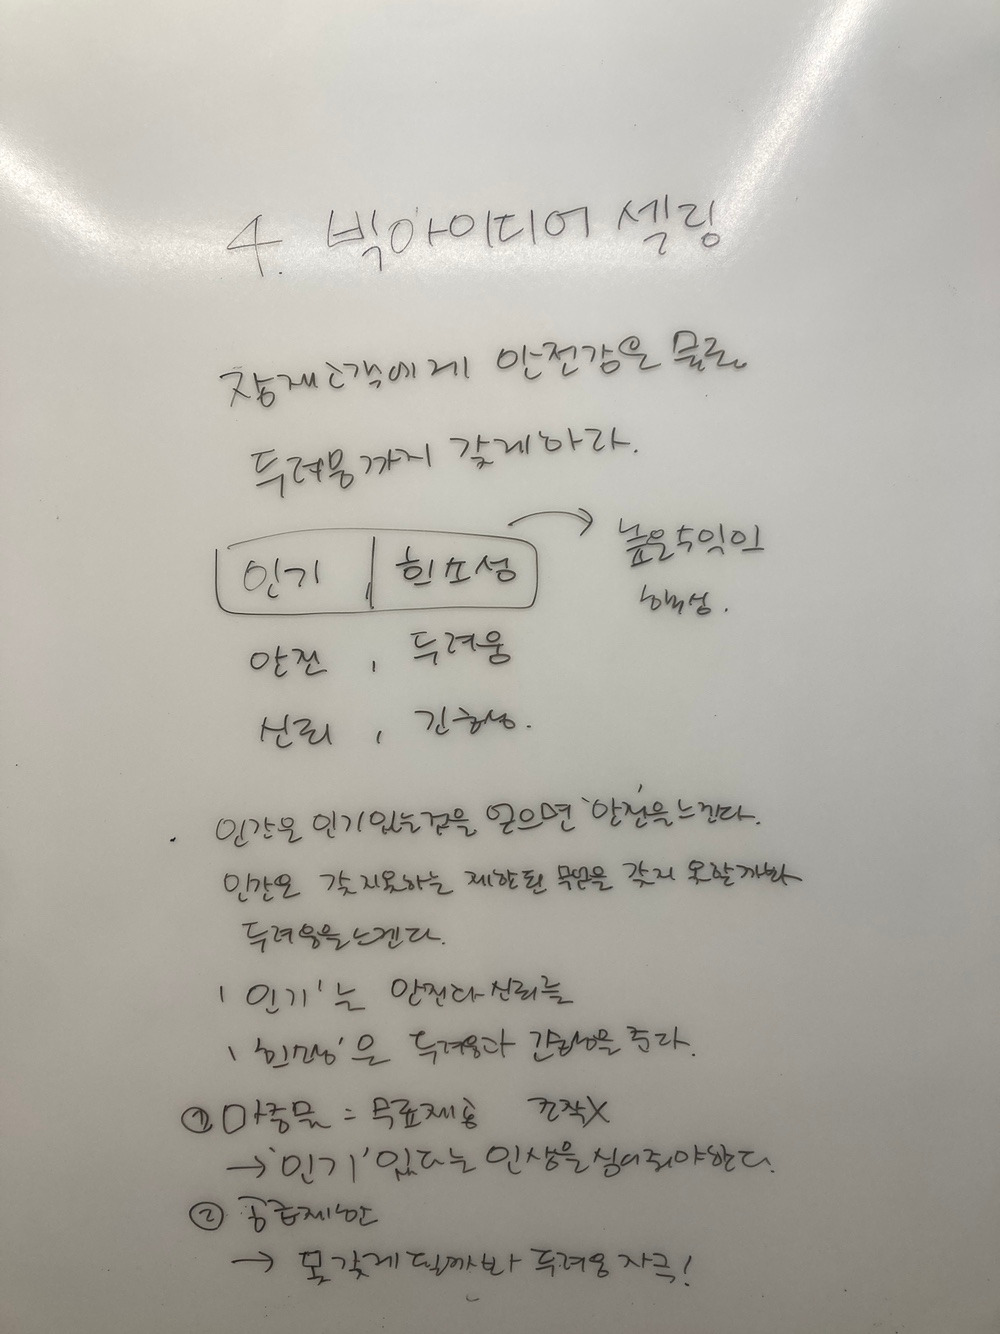 4. 빅아이디어 셀링
잠재고객에게 안전감은 물론
두려움까지 갖게하라.
인기 | 희소성 → 높은수익의
핵심.
안전 , 두려움
신뢰 , 긴급성.
. 인간은 인기있는것을 얻으면 '안전'을 느낀다.
인간은 갖지못하는 제한된 물건을 갖지 못할까봐
두려움을 느낀다.
'인기'는 안전과 신뢰를
'희소성'은 두려움과 긴급성을 준다.
① 마중물 = 무료제공 조작X
→ '인기' 있다는 인상을 심어줘야한다.
② 공급제한
→ 못갖게 될까봐 두려움 자극!